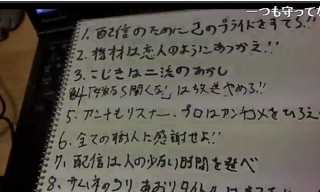 一つも守ってな
1. 配信のために己のプライドをすてろ!!
2. 機材は恋人のようにあつかえ!!
3. こじきは二流のあかし
は放送やめろ!!
5. アンチもリスナー、プロはアンチコメをひろえ
6. 全ての職人に感謝せよ!!
7. 配信は人の少ない時間を選べ
8. サムネのつり あおりタイトル